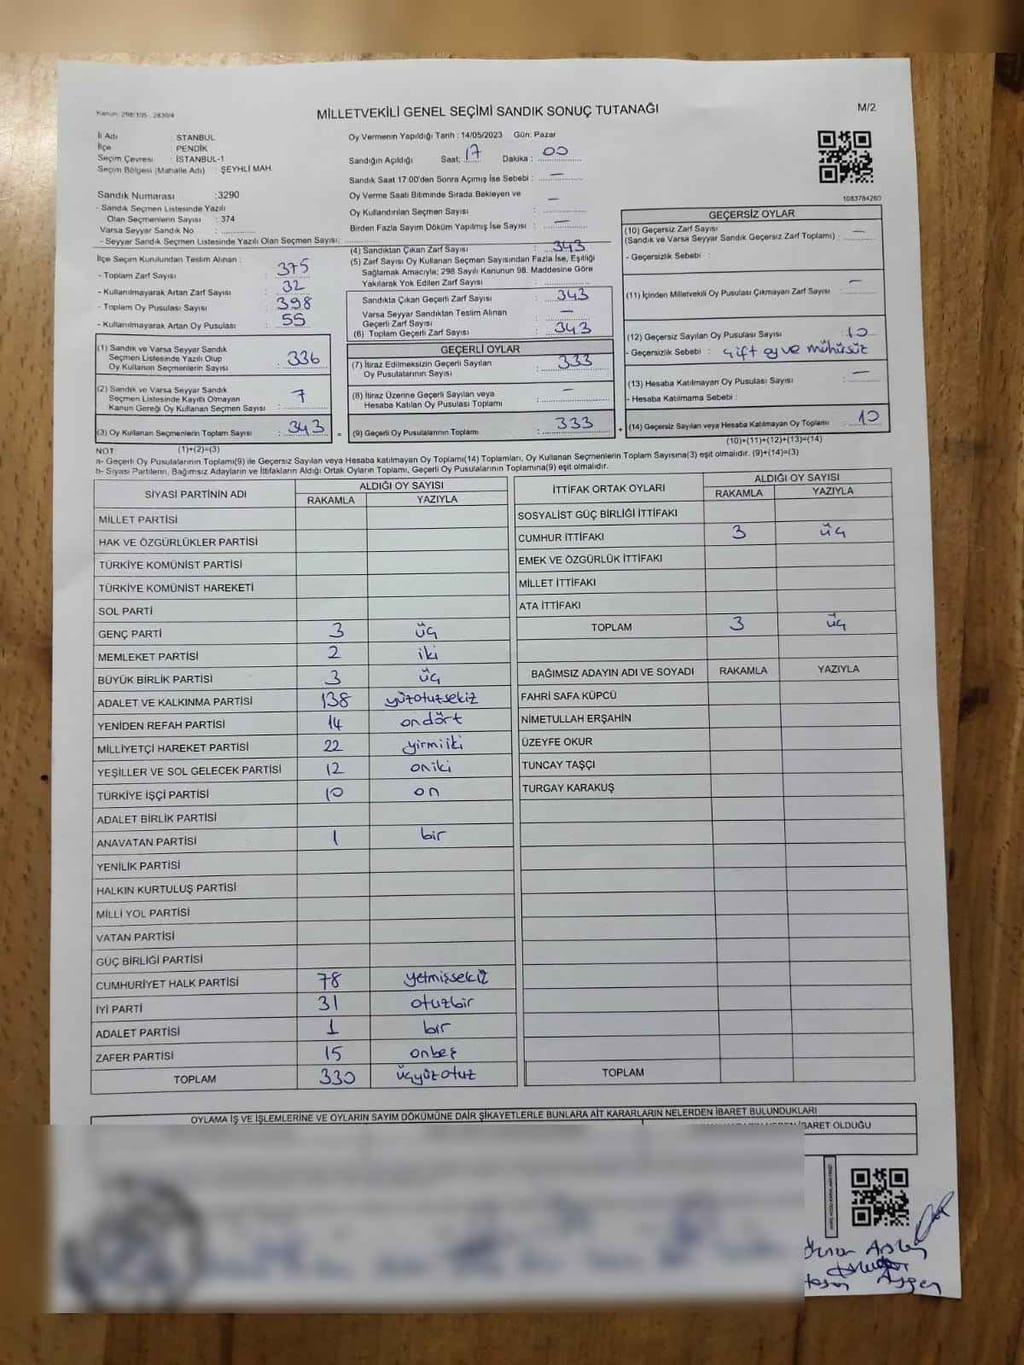 Kanun: 298/105 - 2839/4
MİLLETVEKİLİ GENEL SEÇİMİ SANDIK SONUÇ TUTANAĞI
M/2
İl Adı : İSTANBUL
İlçe : PENDİK
Seçim Çevresi : İSTANBUL-1
Seçim Bölgesi (Mahalle Adı) : ŞEYHLİ MAH.
Sandık Numarası :3290
- Sandık Seçmen Listesinde Yazılı
Olan Seçmenlerin Sayısı : 374
Varsa Seyyar Sandık No :
- Seyyar Sandık Seçmen Listesinde Yazılı Olan Seçmen Sayısı:
İlçe Seçim Kurulundan Teslim Alınan :
- Toplam Zarf Sayısı : 375
- Kullanılmayarak Artan Zarf Sayısı : 32
- Toplam Oy Pusulası Sayısı : 398
- Kullanılmayarak Artan Oy Pusulası : 55
(1) Sandık ve Varsa Seyyar Sandık
Seçmen Listesinde Yazılı Olup
Oy Kullanan Seçmenlerin Sayısı : 336
(2) Sandık ve Varsa Seyyar Sandık
Seçmen Listesinde Kayıtlı Olmayan
Kanun Gereği Oy Kullanan Seçmen Sayısı : 7
(3) Oy Kullanan Seçmenlerin Toplam Sayısı : 343
(1)+(2)=(3)
Oy Vermenin Yapıldığı Tarih : 14/05/2023 Gün: Pazar
Sandığın Açıldığı Saat: 17 Dakika : 00
Sandık Saat 17:00'den Sonra Açılmış İse Sebebi : —
Oy Verme Saati Bitiminde Sırada Bekleyen ve
Oy Kullandırılan Seçmen Sayısı : —
Birden Fazla Sayım Döküm Yapılmış İse Sayısı : —
(4) Sandıktan Çıkan Zarf Sayısı : 343
(5) Zarf Sayısı Oy Kullanan Seçmen Sayısından Fazla İse, Eşitliği
Sağlamak Amacıyla; 298 Sayılı Kanunun 98. Maddesine Göre
Yakılarak Yok Edilen Zarf Sayısı :
Sandıkta Çıkan Geçerli Zarf Sayısı : 343
Varsa Seyyar Sandıktan Teslim Alınan
Geçerli Zarf Sayısı : —
(6) Toplam Geçerli Zarf Sayısı : 343
GEÇERLİ OYLAR
(7) İtiraz Edilmeksizin Geçerli Sayılan
Oy Pusulalarının Sayısı : 333
(8) İtiraz Üzerine Geçerli Sayılan veya
Hesaba Katılan Oy Pusulası Toplamı : —
= (9) Geçerli Oy Pusulalarının Toplamı : 333
1083784260
GEÇERSİZ OYLAR
(10) Geçersiz Zarf Sayısı : —
(Sandık ve Varsa Seyyar Sandık Geçersiz Zarf Toplamı)
- Geçersizlik Sebebi :
(11) İçinden Milletvekili Oy Pusulası Çıkmayan Zarf Sayısı : —
(12) Geçersiz Sayılan Oy Pusulası Sayısı : 10
- Geçersizlik Sebebi : Çift oy ve mühürsüz
(13) Hesaba Katılmayan Oy Pusulası Sayısı : —
- Hesaba Katılmama Sebebi :
+ (14) Geçersiz Sayılan veya Hesaba Katılmayan Oy Toplamı : 10
(10)+(11)+(12)+(13)=(14)
NOT:
a- Geçerli Oy Pusulalarının Toplamı(9) ile Geçersiz Sayılan veya Hesaba katılmayan Oy Toplamı(14) Toplamları, Oy Kullanan Seçmenlerin Toplam Sayısına(3) eşit olmalıdır. (9)+(14)=(3)
b- Siyasi Partilerin, Bağımsız Adayların ve İttifakların Aldığı Ortak Oyların Toplamı, Geçerli Oy Pusulalarının Toplamına(9) eşit olmalıdır.
SİYASİ PARTİNİN ADI ALDIĞI OY SAYISI
RAKAMLA YAZIYLA
MİLLET PARTİSİ
HAK VE ÖZGÜRLÜKLER PARTİSİ
TÜRKİYE KOMÜNİST PARTİSİ
TÜRKİYE KOMÜNİST HAREKETİ
SOL PARTİ
GENÇ PARTİ 3 üç
MEMLEKET PARTİSİ 2 iki
BÜYÜK BİRLİK PARTİSİ 3 üç
ADALET VE KALKINMA PARTİSİ 138 yüzotuzsekiz
YENİDEN REFAH PARTİSİ 14 ondört
MİLLİYETÇİ HAREKET PARTİSİ 22 yirmiiki
YEŞİLLER VE SOL GELECEK PARTİSİ 12 oniki
TÜRKİYE İŞÇİ PARTİSİ 10 on
ADALET BİRLİK PARTİSİ
ANAVATAN PARTİSİ 1 bir
YENİLİK PARTİSİ
HALKIN KURTULUŞ PARTİSİ
MİLLİ YOL PARTİSİ
VATAN PARTİSİ
GÜÇ BİRLİĞİ PARTİSİ
CUMHURİYET HALK PARTİSİ 78 yetmişsekiz
İYİ PARTİ 31 otuzbir
ADALET PARTİSİ 1 bir
ZAFER PARTİSİ 15 onbeş
TOPLAM 330 üçyüzotuz
İTTİFAK ORTAK OYLARI ALDIĞI OY SAYISI
RAKAMLA YAZIYLA
SOSYALİST GÜÇ BİRLİĞİ İTTİFAKI
CUMHUR İTTİFAKI 3 üç
EMEK VE ÖZGÜRLÜK İTTİFAKI
MİLLET İTTİFAKI
ATA İTTİFAKI
TOPLAM 3 üç
BAĞIMSIZ ADAYIN ADI VE SOYADI RAKAMLA YAZIYLA
FAHRİ SAFA KÜPCÜ
NİMETULLAH ERŞAHİN
ÜZEYFE OKUR
TUNCAY TAŞÇI
TURGAY KARAKUŞ
TOPLAM
OYLAMA İŞ VE İŞLEMLERİNE VE OYLARIN SAYIM DÖKÜMÜNE DAİR ŞİKAYETLERLE BUNLARA AİT KARARLARIN NELERDEN İBARET BULUNDUKLARI
İBARET OLDUĞU